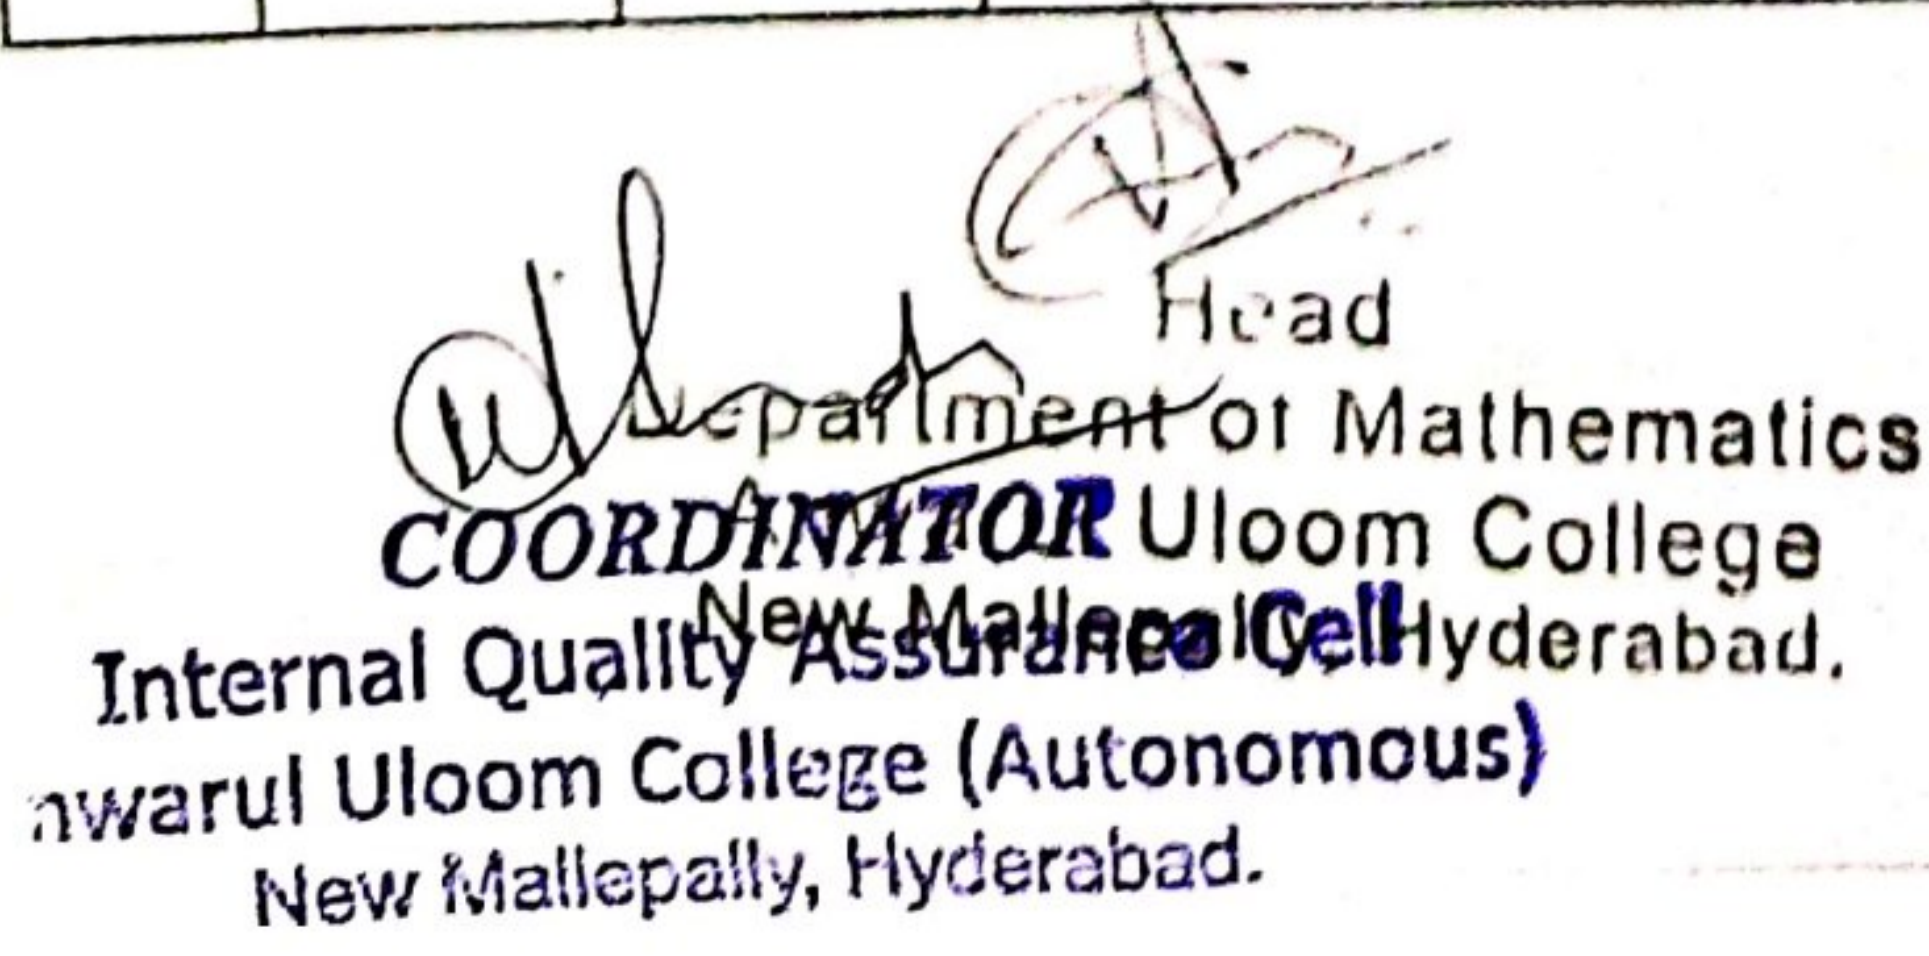 Head
Department of Mathematics
Uloom College
New Mallepally, Hyderabad.
COORDINATOR
Internal Quality Assurance Cell
nwarul Uloom College (Autonomous)
New Mallepally, Hyderabad.